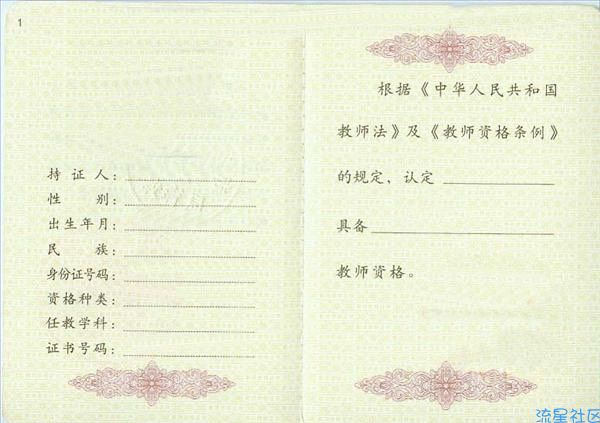 1
持证人：
性别：
出生年月：
民族：
身份证号码：
资格种类：
任教学科：
证书号码：
根据《中华人民共和国
教师法》及《教师资格条例》
的规定，认定
具备
教师资格。
流星社区